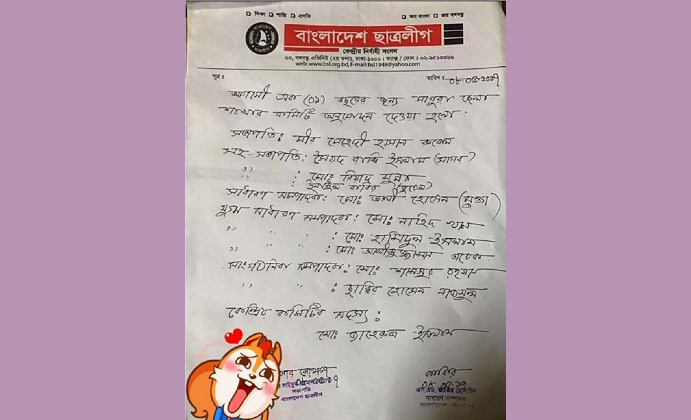 শিক্ষা শান্তি প্রগতি
জয় বাংলা জয় বঙ্গবন্ধু
বাংলাদেশ ছাত্রলীগ
কেন্দ্রীয় নির্বাহী সংসদ
২৩, বঙ্গবন্ধু এভিনিউ (২য় তলা), ঢাকা-১০০০।
web: www.bsl.org.bd, E-mail: bsl1948@yahoo.com
সূত্র :
তারিখ :
আগামী এক (০১) বছরের জন্য মাগুরা জেলা
শাখার কমিটি অনুমোদন দেওয়া হলো :
সভাপতি: মীর মেহেদী হাসান রুবেল
সহ সভাপতি: সৈয়দ রাব্বি ইসলাম (সাগর)
,, : মোঃ রিয়াদ
সাধারণ সম্পাদক: মোঃ আলী হোসেন (মুক্তা)
যুগ্ম সাধারণ সম্পাদক: মোঃ নাহিদ খান
,, ,, : মোঃ হামিদুল ইসলাম
,, ,, : মোঃ
সাংগঠনিক সম্পাদক: মোঃ রহমান
,, ,, : হোসেন
কেন্দ্রিয় কমিটির সদস্য :
মোঃ ইসলাম
সভাপতি
বাংলাদেশ ছাত্রলীগ
এস.এম. জাকির হোসাইন
সাধারণ সম্পাদক
বাংলাদেশ ছাত্রলীগ